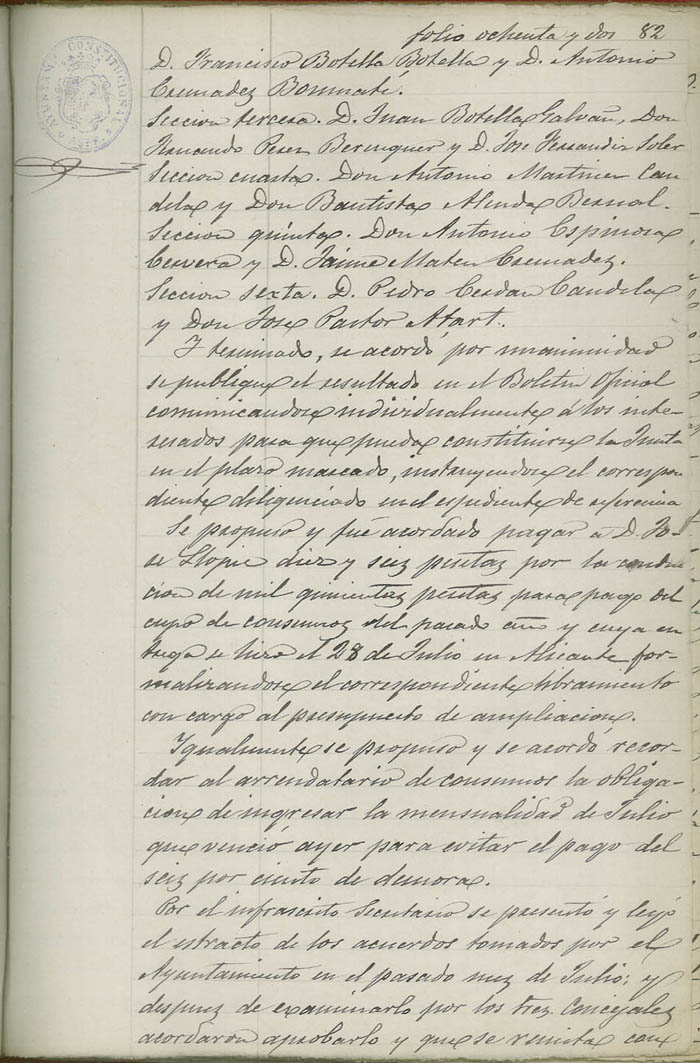 folio ochenta y dos 82
AYUNTAMIENTO CONSTITUCIONAL
ASPE
D. Francisco Botella Botella y D. Antonio
Cremadez Bonmatí.
Seccion tercera. D. Juan Botella Galvañ, Don
Fernando Perez Berenguer y D. Jose Ferrandiz Soler
Seccion cuarta. Don Antonio Martinez Can
dela y Don Bautista Alenda Bernal.
Seccion quinta. Don Antonio Espinosa
Cervera y D. Jaime Mateu Cremadez.
Seccion sexta. D. Pedro Cerdan Candela
y Don Jose Pastor
Y terminado, se acordó por unanimidad
se publique el resultado en el Boletin Oficial
comunicandose individualmente á los inte-
resados para que pueda constituirse la Junta
en el plazo marcado, instruyendose el correspon
diente diligenciado en el espediente de referencia
Se propuso y fué acordado pagar á D. Jo-
se Llopiz diez y seiz pesetaz por la conduc
cion de mil quinientaz pesetaz para pago del
cupo de consumoz del pasado año y cuya en
trega se hizo el 28 de Julio en Alicante for-
malizandose el correspondiente libramiento
con cargo al presupuesto de ampliacion.
Igualmente se propuso y se acordó recor-
dar al arrendatario de consumos la obliga-
cion de ingresar la mensualidad de Julio
que venció ayer para evitar el pago del
seiz por ciento de demora.
Por el infrascrito Secretario se presentó y leyó
el estracto de los acuerdos tomados por el
Ayuntamiento en el pasado mez de Julio; y
despuez de examinarlo por los Srez. Concejalez
acordaron aprobarlo y que se remita con